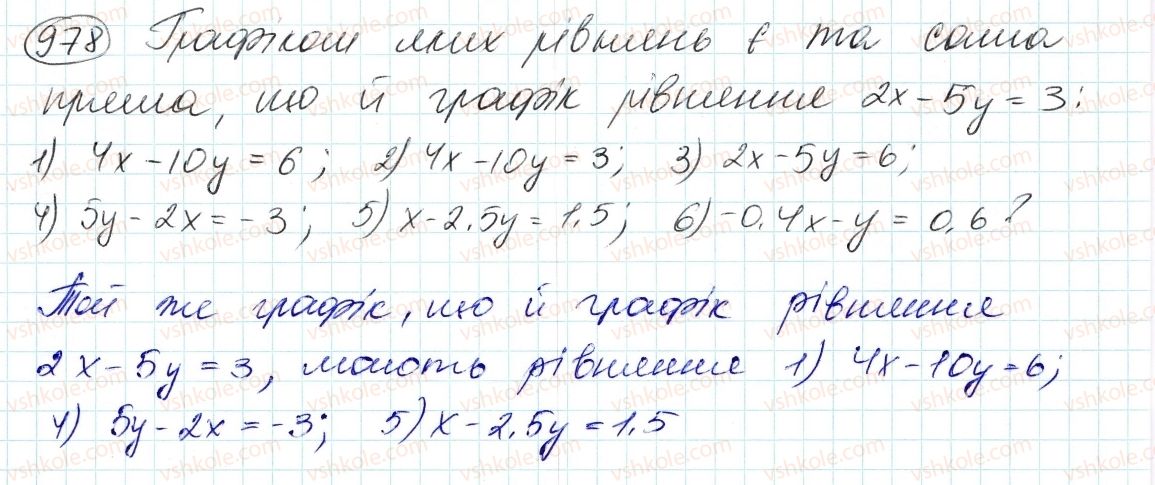 978 Графіком яких рівнянь є та сама
пряма, що й графік рівняння 2x - 5y = 3:
1) 4x - 10y = 6; 2) 4x - 10y = 3; 3) 2x - 5y = 6;
4) 5y - 2x = -3; 5) x - 2,5y = 1,5; 6) -0,4x - y = 0,6?
Той же графік, що й графік рівняння
2x - 5y = 3, мають рівняння 1) 4x - 10y = 6;
4) 5y - 2x = -3; 5) x - 2,5y = 1,5
vshkole.com